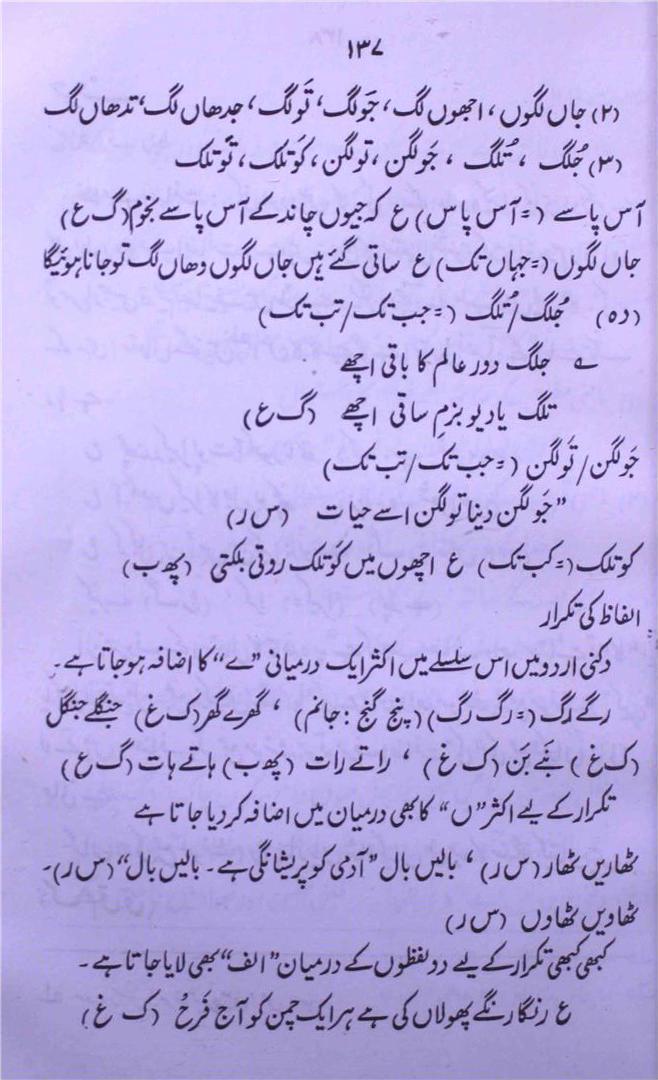 ۱۳۷
(۲) جاں لگوں، اجھوں لگ، جَولگ، تَولگ، جدھاں لگ، تدھاں لگ
(۳) جُلگ، تُلگ، جَولگن، تولگن، کَوتلک، تَوتلک
آس پاسے (= آس پاس) ع کہ جیوں چاند کے آس پاسے نجوم (گ ع)
جاں لگوں (= جہاں تک) ع ساتی گئے ہیں جاں لگوں وھاں لگ تو جانا ہوئیگا
(دہ) جُلگ / تُلگ (= جب تک / تب تک)
؎ جلگ دور عالم کا باقی اچھے
تلگ یاد یو بزم ساقی اچھے (گ ع)
جَولگن / تَولگن (= جب تک / تب تک)
"جَولگن دینا تولگن اسے حیات (س ر)
کوتلک (= کب تک) ع اچھوں میں کَوتلک روتی بلکتی (پھ ب)
الفاظ کی تکرار
دکنی اردو میں اس سلسلے میں اکثر ایک درمیانی "ے" کا اضافہ ہو جاتا ہے۔
رگے رگ (= رگ رگ) (پنج گنج: جانم)، گھرے گھر (ک غ) جنگلے جنگل
(ک غ) بَنے بَن (ک غ)، راتے رات (پھ ب) ہاتے ہات (گ ع)
تکرار کے لیے اکثر "ں" کا بھی درمیان میں اضافہ کر دیا جاتا ہے
ٹھاریں ٹھار (س ر)، بالیں بال "آدمی کو پریشانگی ہے۔ بالیں بال" (س ر)۔
ٹھاویں ٹھاوں (س ر)
کبھی کبھی تکرار کے لیے دو لفظوں کے درمیان "الف" بھی لایا جاتا ہے۔
ع رنگا رنگے پھولاں کی ہے ہر ایک چمن کو آج فَرحُ (ک غ)